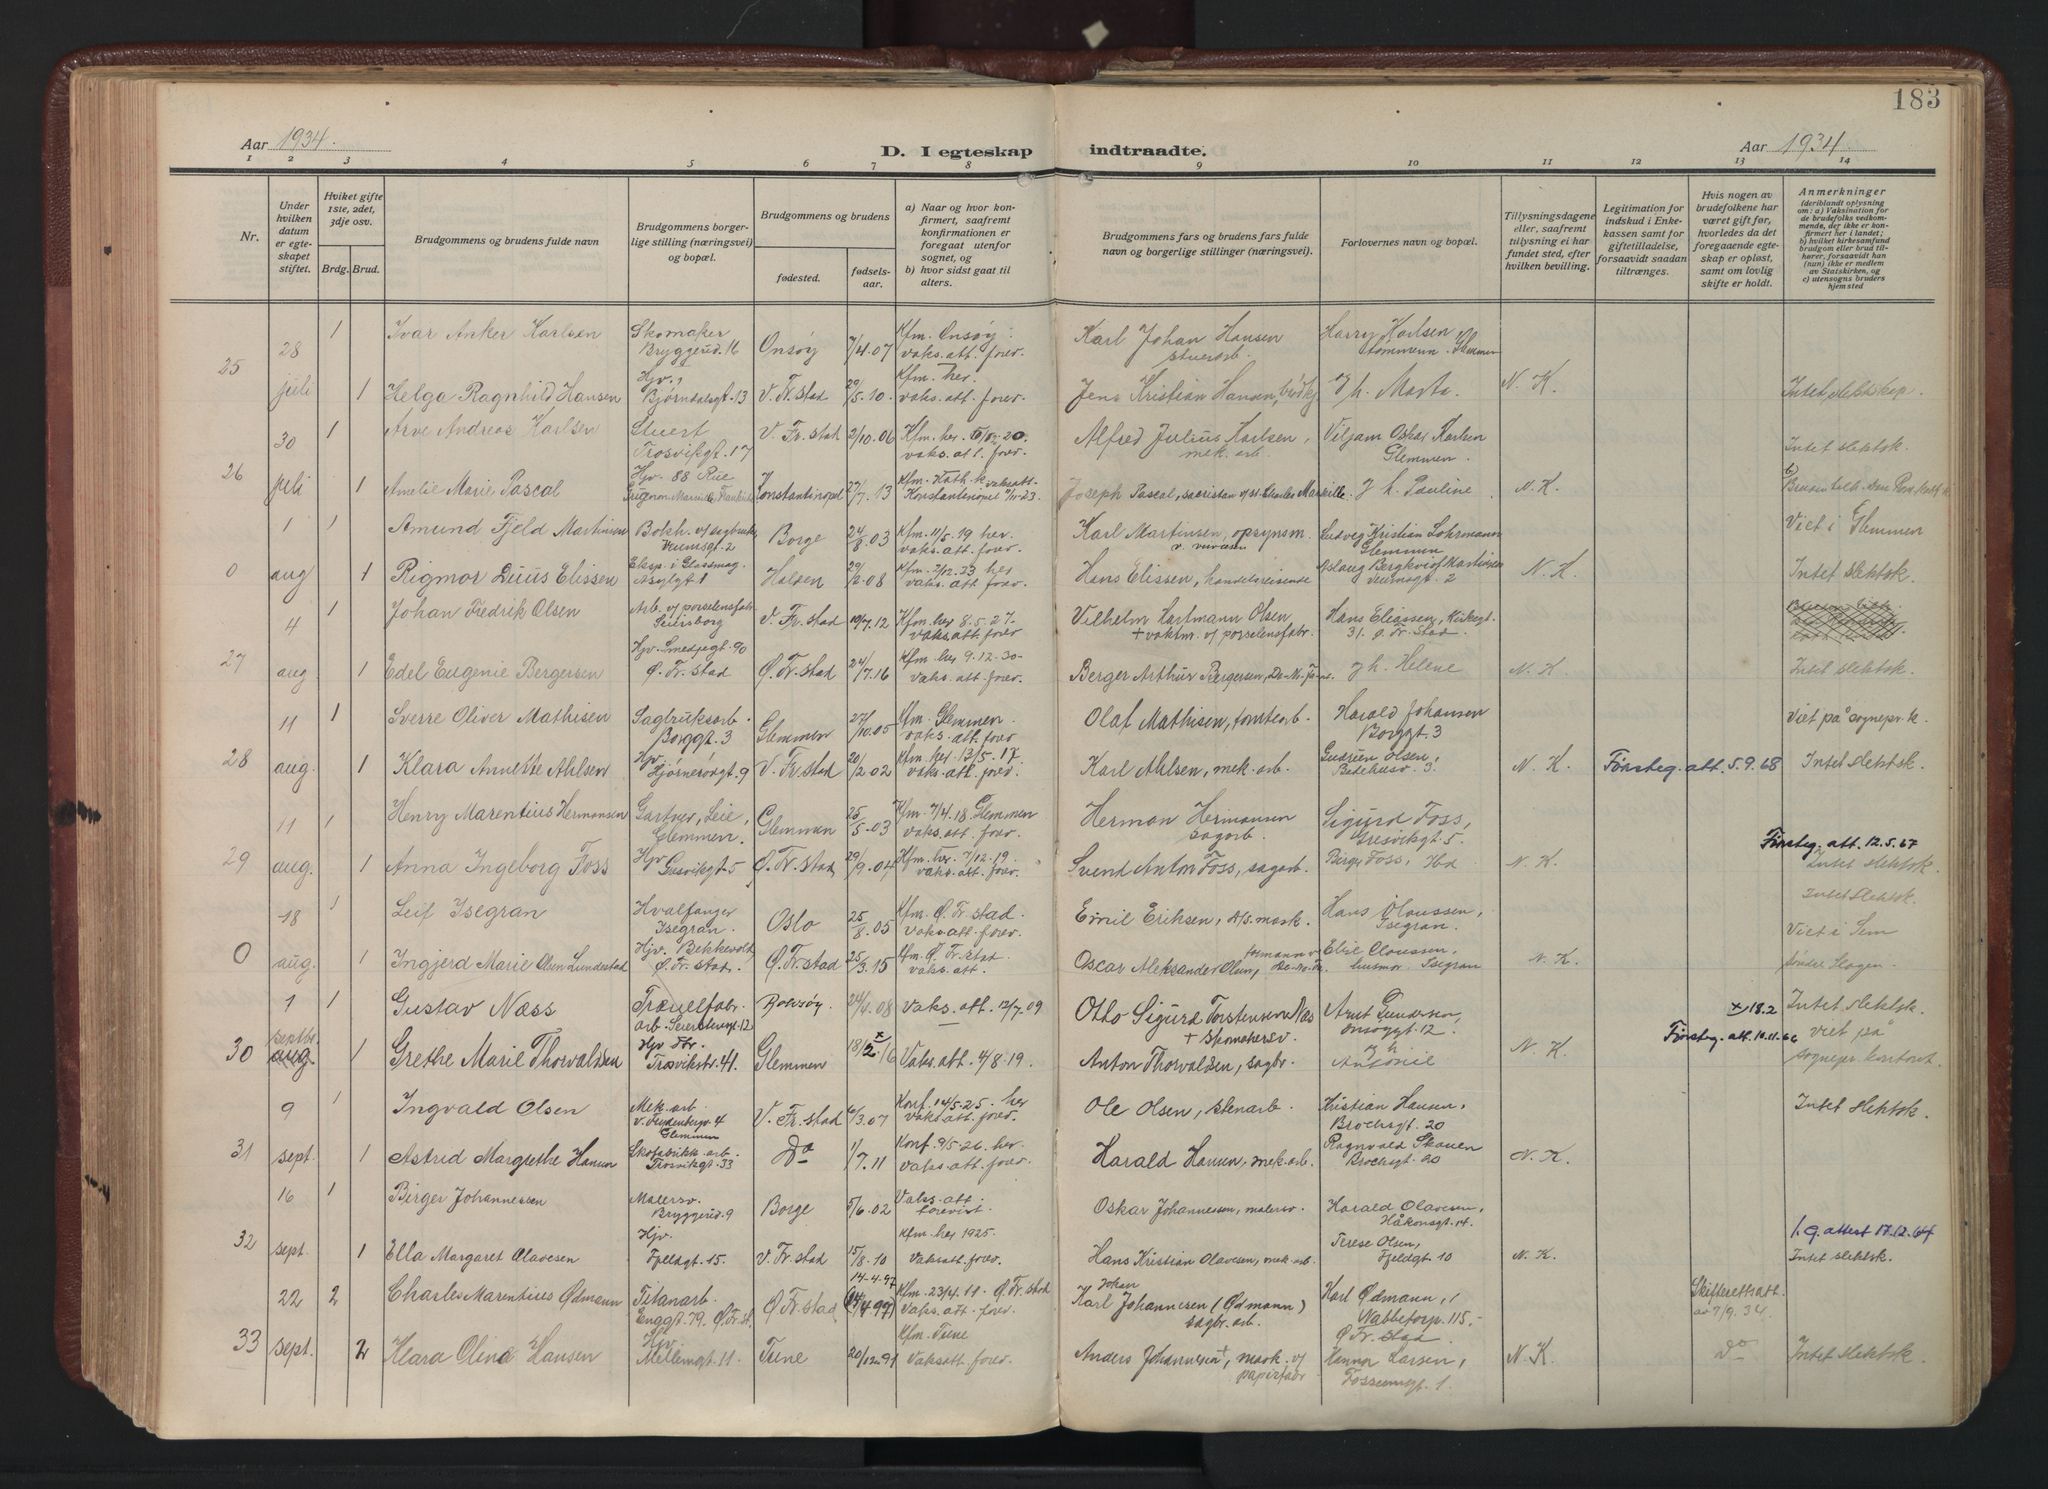 183
Aar 1934.
D. I egteskap indtraadte.
Aar 1934
1 2 3 4 5 6 7 8 9 10 11 12 13 14
Nr.
Under hvilken datum er egteskapet stiftet.
Hviket gifte 1ste, 2det, 3dje osv.
Brdg. Brud.
Brudgommens og brudens fulde navn
Brudgommens borgerlige stilling (næringsvei) og bopæl.
Brudgommens og brudens
fødested.
fødselsaar.
a) Naar og hvor konfirmert, saafremt konfirmationen er foregaat utenfor sognet, og
b) hvor sidst gaat til alters.
Brudgommens fars og brudens fars fulde navn og borgerlige stillinger (næringsvei)
Forlovernes navn og bopæl.
Tillysningsdagene eller, saafremt tillysning ei har fundet sted, efter hvilken bevilling.
Legitimation for indskud i Enkekassen samt for giftetilladelse, forsaavidt saadan tiltrænges.
Hvis nogen av brudefolkene har været gift før, hvorledes da det foregaaende egteskap er opløst, samt om lovlig skifte er holdt.
Anmerkninger
(deriblandt oplysning om: a) Vaksination for de brudefolks vedkommende, der ikke er konfirmert her i landet; b) hvilket kirkesamfund brudgom eller brud tilhører, forsaavidt han (hun) ikke er medlem av Statskirken, og c) utensogns bruders hjemsted
25 28 juli 1 Ivar Anker Karlsen Skomaker Bryggerid. 16 Onsøy 7/4.07 Kfm. Onsøy. vaks.att. forev. Karl Johan Hansen Harry Karlsen
1 Helga Ragnhild Hansen Hjv. Bjørndalsgt. 13 V. Fr.stad 29/5.10. Kfm. her. vaks.att. forev. Jens Kristian Hansen, J h. Marta. N. K. Intet slektskap.
26 30 juli 1 Arve Andreas Karlsen Stuert Trosvikgt. 17 V. Fr.stad 2/10.06 Kfm. her. vaks.att. forev. Alfred Julius Karlsen, mek. arb. Viljam Oskar Karlsen Glemmen. Intet slektsk.
1 Amelie Marie Pascal Hjv. 88 Rue Konstantinopel 27/7.13 Joseph Pascal, J h. Pauline N. K.
0 1 aug 1 Amund Fjeld Martinsen Bokh. v/ sagbruk, Borge 24/8.03 Kfm. 11/5.19 her vaks.att. forev. Karl Martinsen, opsynsm. Ludvig Kristian Lohrmann Glemmen Viet i Glemmen
1 Rigmor Duus Elissen Eksp. i Glassmag. Asylgt 1 Halden Kfm. 2/12.23 her vaks.att. forev. Hans Elissen, handelsreisende Aslaug Bergkvist Martinsen N. K. Intet slektsk.
27 4 aug 1 Johan Fredrik Olsen Arb. v/ porselensfabr. Seiersborg V. Fr.stad 19/7.12 Kfm. her 8.5.27. vaks.att. forev Vilhelm Hartmann Olsen + vaktm. v/ porselensfabr. Hans Eliassen, Kirkegt. 31. Ø. Fr.stad.
1 Edel Eugenie Bergersen Hjv. Smedjegt. 90 Ø. Fr.stad Ø. Fr.stad 24/7.16 Kfm. her 9.12.30 vaks.att. forev. Berger Arthur Bergersen, J h. Helene N. K. Intet slektsk.
28 11 aug. 1 Sverre Oliver Mathisen Sagbruksarb. Borggt. 3 Glemmen 27/10.05 Kfm. Glemmen. vaks.att. forev Olaf Mathisen, tomtearb. Harald Johansen Borggt. 3 Viet på sognepr.k.
1 Klara Annette Ahlsen Hjv. Hjørnerødgt. 9 V. Fr.stad 20/2.02 Kfm. her. 13/5.17. vaks.att. forev. Karl Ahlsen, mek. arb. Gudrun Olsen, Bedehusv. 3. N. K. Førsteg. att. 5.9.68 Intet slektsk.
29 11 aug. 1 Henry Marentius Hermansen Gartner, Leie, Glemmen. Glemmen 25/5.03 Kfm. 7/4.18 Glemmen vaks.att. forev. Herman Hermansen sagarb. Sigurd Foss, Gresvikgt. 5. Førsteg. att. 12.5.67
1 Anna Ingeborg Foss Hjv Gresvikgt. 5 Ø. Fr.stad 29/9.04 Kfm. her. 7/12.19. vaks.att. forev. Svend Anton Foss, sagarb. Birger Foss, Ibd N. K. Intet slektsk.
0 18 aug. 1 Leif Isegran Hvalfanger Isegran. Oslo 25/8.05 Kfm. Ø. Fr.stad. vaks.att. forev. Emil Eriksen, Hans Olaussen, Isegran. Intet slektsk. Viet i Sem
1 Ingjerd Marie Olsen Lundestad Hjv. Bekkevold, Ø. Fr.stad. Ø. Fr.stad 25/3.15 Kfm. Ø. Fr.stad vaks.att. Oscar Aleksander Olsen, formann v. Elise Olaussen, husmor. Isegran N. K. søndre Slagen.
30 1 septbr. aug. 1 Gustav Næss Træuelfabr. arb. Seierstensgt. 12 24/4.08 Vaks.att. 12/7.09 Otto Sigurd Torstensen Næs + skomakersv. Arnt Gundersen, Onsøygt. 12. x 18.2 Intet slektsk. viet på sognepr. kontoret.
1 Grethe Marie Thorvaldsen Hjv Fbr. Trosvikstr. 41. Glemmen 18/2 x.16 Vaks.att. 4/8.19. Anton Thorvaldsen, sagbr. J h Antonie N. K. Førsteg. att. 10.11.66
31 9 sept. 1 Ingvald Olsen Mek. arb. Glemmen V. Fr.stad 6/3.07 Konf. 14/5.25. her vaks.att. forev. Ole Olsen, stenarb. Kristian Hansen, Brochsgt. 20 Intet slektsk.
1 Astrid Margrethe Hansen Skofabrikk arb. Trosvikgt. 33 Do 1/7.11 Konf. 9/5.26. her. vaks.att. forev. Harald Hansen, mek. arb. Ragnvald Skauen Brochsgt. 20 N. K.
32 16 sept. 1 Birger Johannessen Malersv. Bryggerid. 9 Borge 5/6.02 Vaks.att. forevist. Oskar Johannessen, malersv. Harald Olavesen, Håkonsgt. 14. l. g. attest 17.12.64
1 Ella Margaret Olavesen Hjv. Fjeldgt. 15. V. Fr.stad 15/8.10 Kfm. her 1925. Vaksatt. forev. Hans Kristian Olavesen, mek. arb. Terese Olsen, Fjeldgt. 10 N. K. Intet slektsk.
33 22 sept. 2 Charles Marentius Ødmann Titanarb. Enggt. 79. Ø. Fr.st. Ø. Fr.stad 14.4.97 (14/4.97) Kfm. 23/4.11. Ø. Fr.stad Vaks.att. forev. Karl Johan Johannesen (Ødmann) sagbr. arb. Karl Ødmann, Wabbetorp. 115. Ø Fr.stad Skifterettsatt. av 7/9.34.
2 Klara Olina Hansen Hjv. Mellemgt. 11. Tune 20/12.91 Kfm. Tune Vaksatt. forev. Anders Johannesen +, mask. v/ papirfabr Hanna Larsen, Fossumsgt. 1. N. K. Do Intet slektsk.